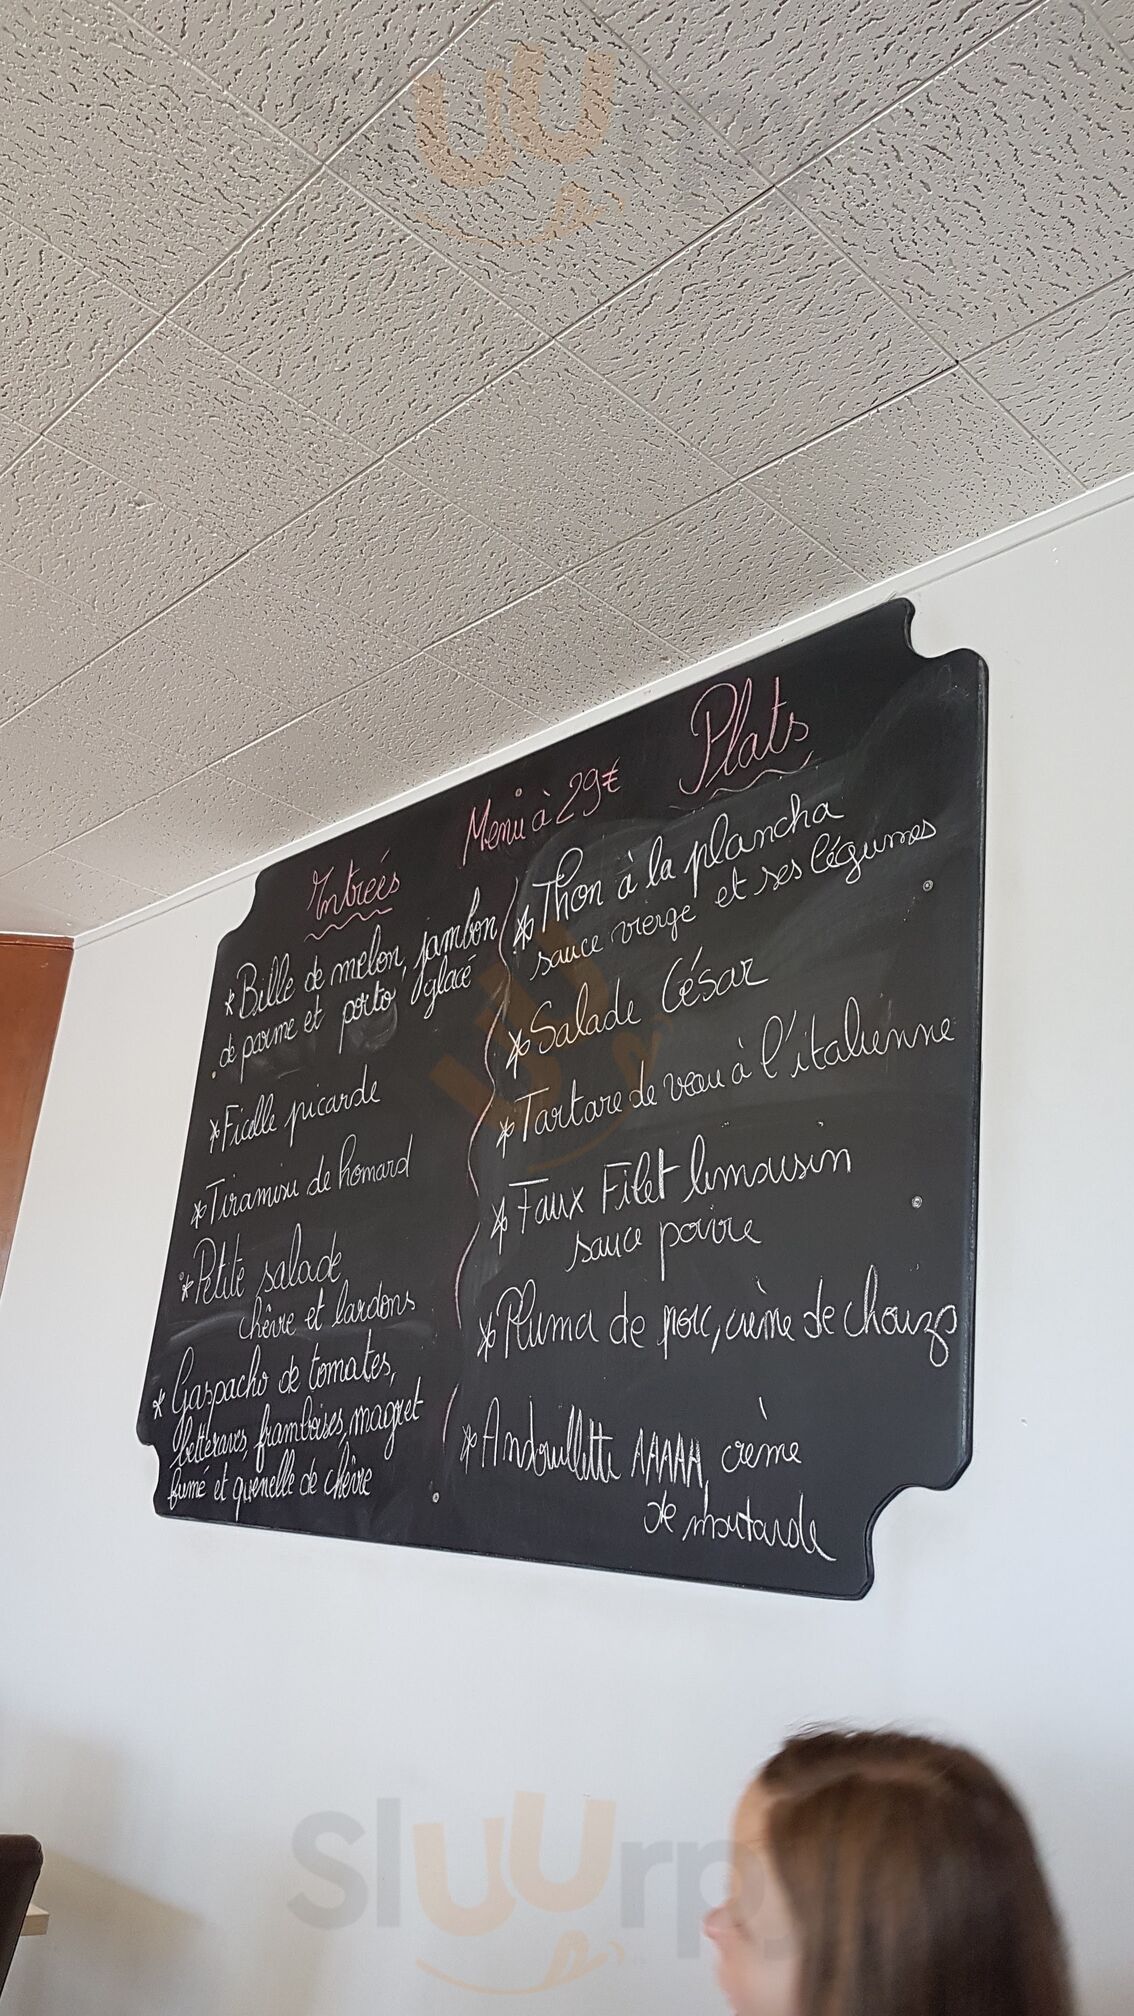 Menu à 29€
Entrées
* Bille de melon, jambon
de parme et porto glacé
* Ficelle picarde
* Tiramisu de homard
* Petite salade
chèvre et lardons
* Gaspacho de tomates,
betteraves, framboises, magret
fumé et quenelle de chèvre
Plats
* Thon à la plancha
sauce vierge et ses légumes
* Salade César
* Tartare de veau à l'italienne
* Faux Filet limousin
sauce poivre
* Pluma de porc, crème de chorizo
* Andouillette AAAAA, crème
de moutarde
Sluurpy